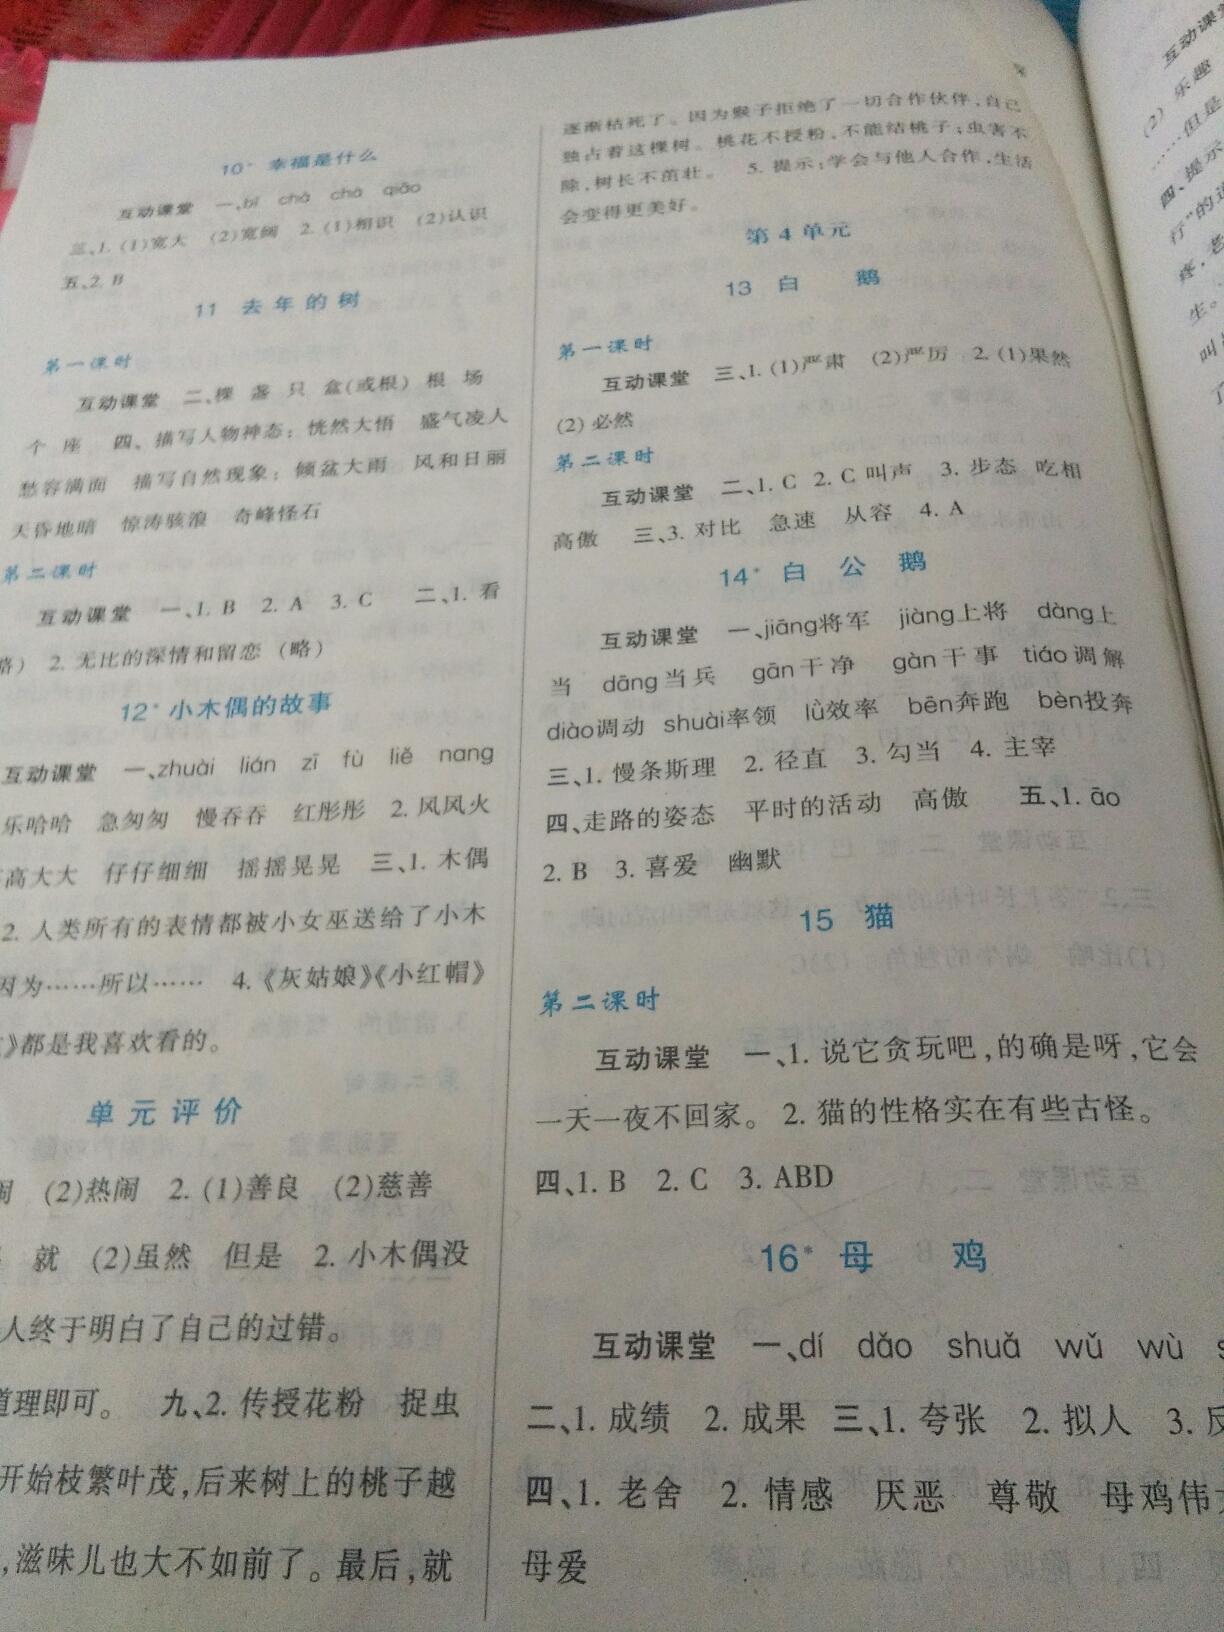 10* 幸福是什么
互动课堂 一、bì chá chà qiāo
三、1. (1)宽大 (2)宽阔 2. (1)相识 (2)认识
五、2. B
11 去年的树
第一课时
互动课堂 二、棵 盏 只 盒(或根) 根 场
个 座 四、描写人物神态：恍然大悟 盛气凌人
愁容满面 描写自然现象：倾盆大雨 风和日丽
天昏地暗 惊涛骇浪 奇峰怪石
第二课时
互动课堂 一、1. B 2. A 3. C 二、1. 看
略) 2. 无比的深情和留恋 (略)
12* 小木偶的故事
互动课堂 一、zhuài lián zī fù liě nang
乐哈哈 急匆匆 慢吞吞 红彤彤 2. 风风火
高高大大 仔仔细细 摇摇晃晃 三、1. 木偶
2. 人类所有的表情都被小女巫送给了小木
因为……所以…… 4.《灰姑娘》《小红帽》
》都是我喜欢看的。
单元评价
闹 (2)热闹 2. (1)善良 (2)慈善
就 (2)虽然 但是 2. 小木偶没
人终于明白了自己的过错。
道理即可。 九、2. 传授花粉 捉虫
开始枝繁叶茂,后来树上的桃子越
,滋味儿也大不如前了。最后,就
逐渐枯死了。因为猴子拒绝了一切合作伙伴,自己
独占着这棵树。桃花不授粉,不能结桃子;虫害不
除,树长不茁壮。 5. 提示:学会与他人合作,生活
会变得更美好。
第4单元
13 白 鹅
第一课时
互动课堂 三、1. (1)严肃 (2)严厉 2. (1)果然
(2) 必然
第二课时
互动课堂 二、1. C 2. C 叫声 3. 步态 吃相
高傲 三、3. 对比 急速 从容 4. A
14* 白 公 鹅
互动课堂 一、jiāng将军 jiàng上将 dàng上
当 dāng当兵 gān干净 gàn干事 tiáo调解
diào调动 shuài率领 lǜ效率 bēn奔跑 bèn投奔
三、1. 慢条斯理 2. 径直 3. 勾当 4. 主宰
四、走路的姿态 平时的活动 高傲 五、1. āo
2. B 3. 喜爱 幽默
15 猫
第二课时
互动课堂 一、1. 说它贪玩吧,的确是呀,它会
一天一夜不回家。 2. 猫的性格实在有些古怪。
四、1. B 2. C 3. ABD
16* 母 鸡
互动课堂 一、dí dǎo shuǎ wǔ wù
二、1. 成绩 2. 成果 三、1. 夸张 2. 拟人 3. 反
四、1. 老舍 2. 情感 厌恶 尊敬 母鸡伟大
母爱
互动课堂
(2) 乐趣
……但是
四、提示
行"的
生。
叫
了